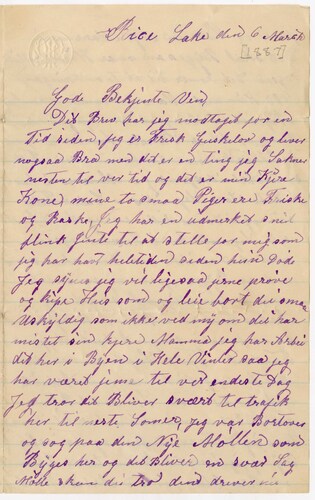 Rice Lake den 6 Marsh
[1887]
Gode Bekjente Ven
Dit Brev har jeg modtaget for en
Tid siden, jeg er Frisk Guskelov og lever
nogsaa Bra men dit er en ting jeg Saknes
nesten til ver tid og dit er min Kjere
Kone, mine to smaa Piger ere Friske
og Raske, jeg har en udmerket snil
flink Jente til at stelle for mig som
jeg har hart heletiden siden hun Døde
Jeg synes jeg vil ligesaa jerne prøve
og kipe Hus som og leie bort du smaa
Uskyldig som ikke ved my om dit har
mistet sin kjere Mamma jeg har Arbei
dit her i Byen i Hele Vinter saa jeg
har været jemme til ver endeste Dag
Jeg tror dit Bliver svært til trafik
her til neste Somer, jeg var Bortover
og sog paa den Nye Møllen som
Bÿges her og dit Bliver en svar Sag
Mølle skun du tro den driver